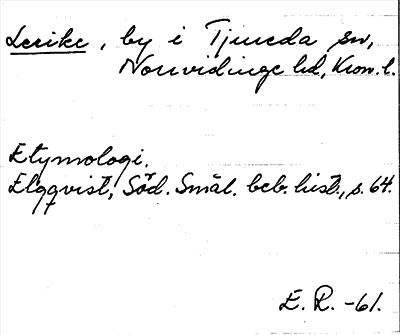 Lerike, by i Tjureda sn,
Norrvidinge hd, Kron. l.
Etymologi.
Elgqvist, Söd. Smål. beb. hist., s. 64.
E. R. -61.